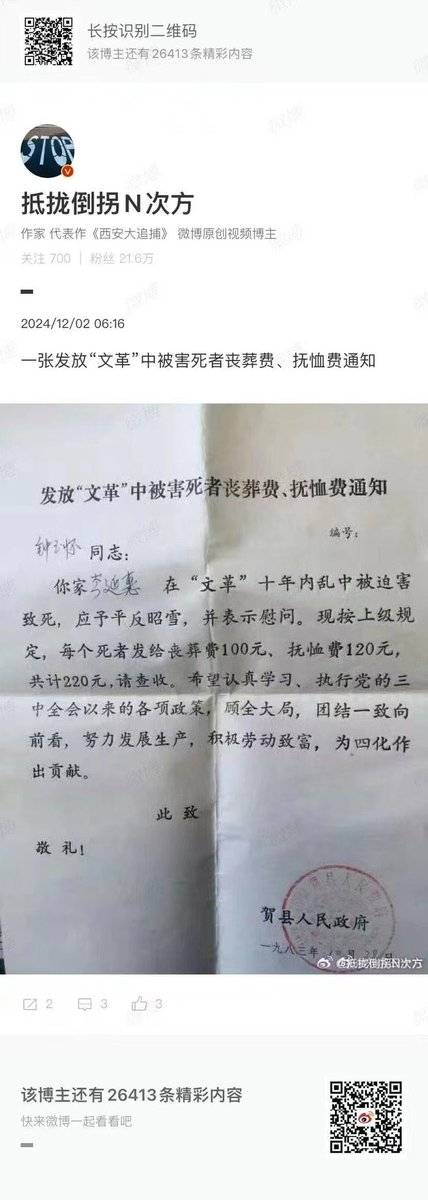 长按识别二维码
该博主还有26413条精彩内容
STOP
抵拢倒拐N次方
作家 代表作《西安大追捕》 微博原创视频博主
关注 700 | 粉丝 21.6万
2024/12/02 06:16
一张发放“文革”中被害死者丧葬费、抚恤费通知
发放“文革”中被害死者丧葬费、抚恤费通知
编号：
同志：
你家李延惠 在“文革”十年内乱中被迫害
致死，应予平反昭雪，并表示慰问。现按上级规
定，每个死者发给丧葬费100元、抚恤费120元，
共计220元，请查收。希望认真学习、执行党的三
中全会以来的各项政策，顾全大局，团结一致向
前看，努力发展生产，积极劳动致富，为四化作
出贡献。
此致
敬礼！
贺县人民政府
一九八三年 月 日
@抵拢倒拐N次方
2 3 3
该博主还有26413条精彩内容
快来微博一起看看吧